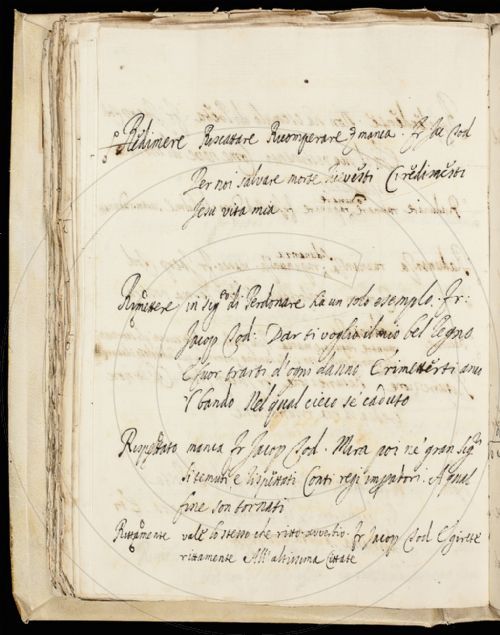 Redimere Riscattare Ricomperare manca. Fr. Ja. Tod
Per noi salvare morte Ci redimesti
Jesu vita mia
Rimettere in sig.to di Perdonare ha un solo esempio. Fr:
Jacop Tod. Dar ti voglio il mio bel legno
E fuor trarti d'ogni danno E rimetterti
bando Nel qual cieco se caduto
Rispettato manca Fr Jacop Tod. Mira poi ne gran sig.ri
Si temuti e rispettati Conti regi A qual
fine son tornati
Rittamente vale lo stesso che ritto avverbio. Fr Jacop Tod E girete
rittamente All'altissima Cittate